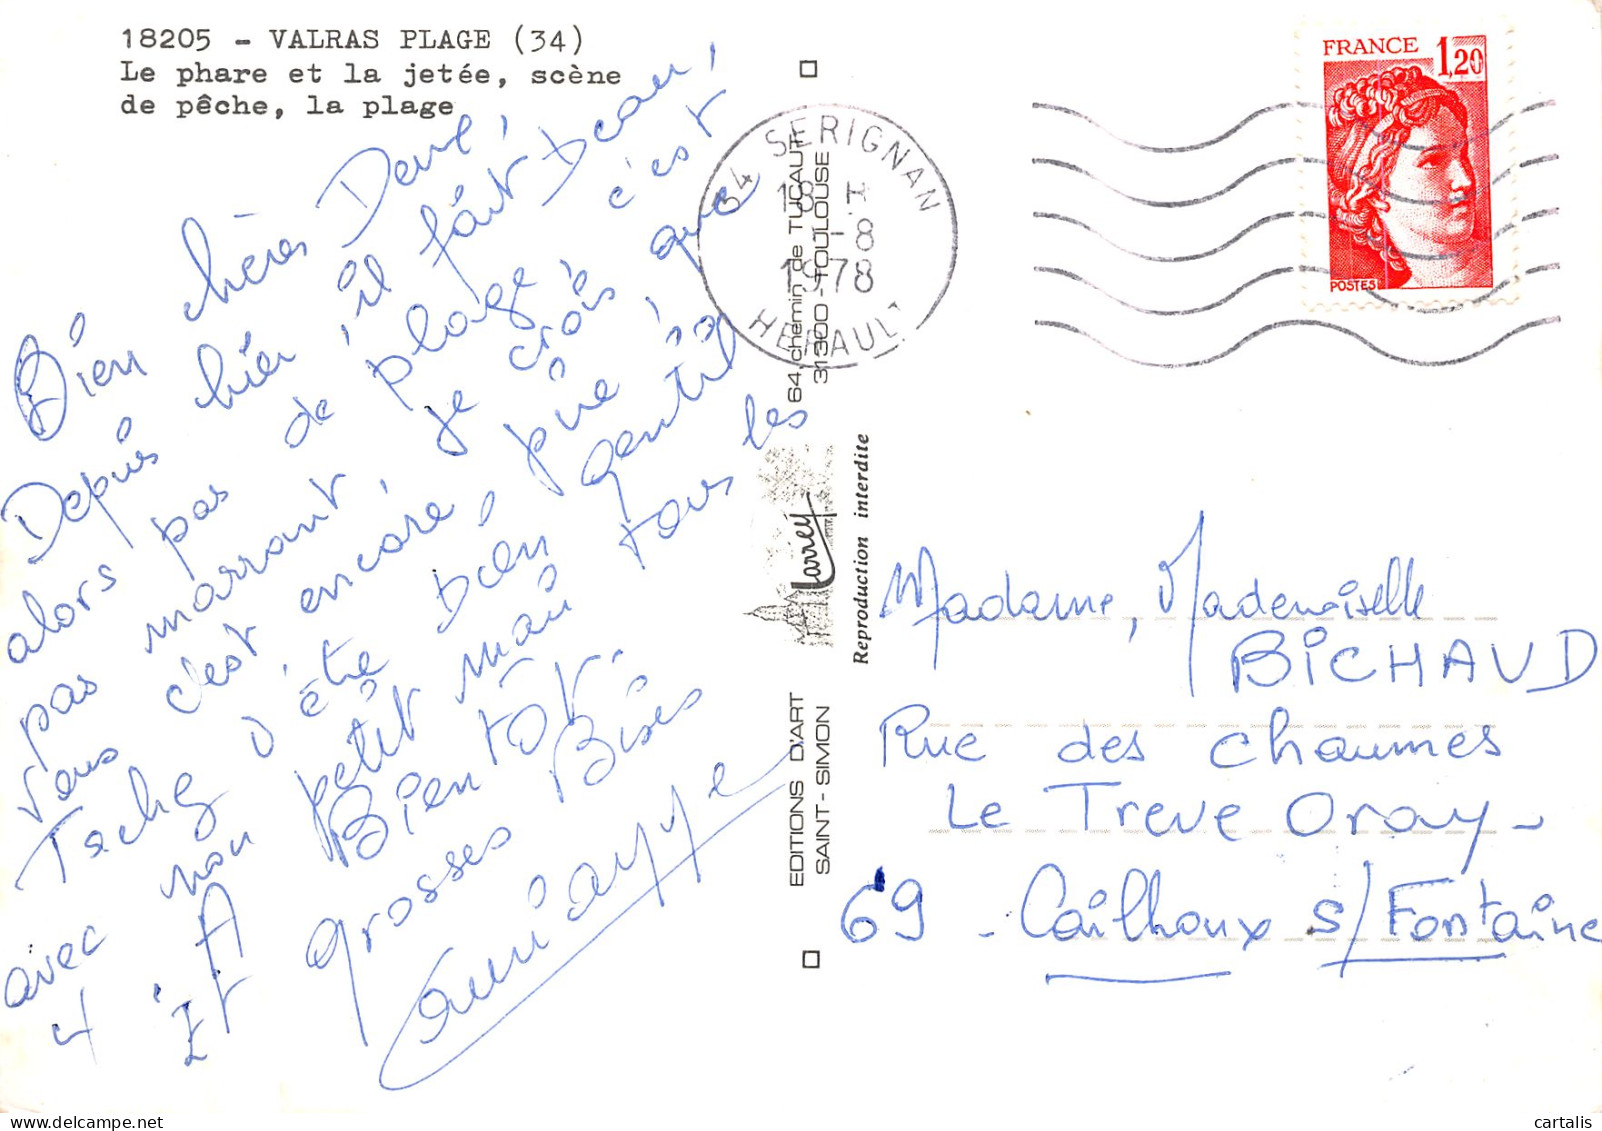 18205 - VALRAS PLAGE (34)
Le phare et la jetée, scène
de pêche, la plage
Bien chères Deux,
Depuis hier, il fait beau,
alors pas de plage, c'est
pas marrant, je crois que
vous c'est encore pire,
d'être bien gentil
avec mon petit mari tous les
4
A Bientôt.
Et grosses Bises
64 chemin de TUCAUT
31300 - TOULOUSE
Larrey
Reproduction interdite
EDITIONS D'ART
SAINT-SIMON
34 SERIGNAN
18 H
-8
1978
HERAULT
FRANCE 1,20
POSTES
Madame, Mademoiselle
BICHAUD
Rue des Chaumes
Le Treve Oray -
69 - Cailhoux s/ Fontaine
delcampe.net
cartalis